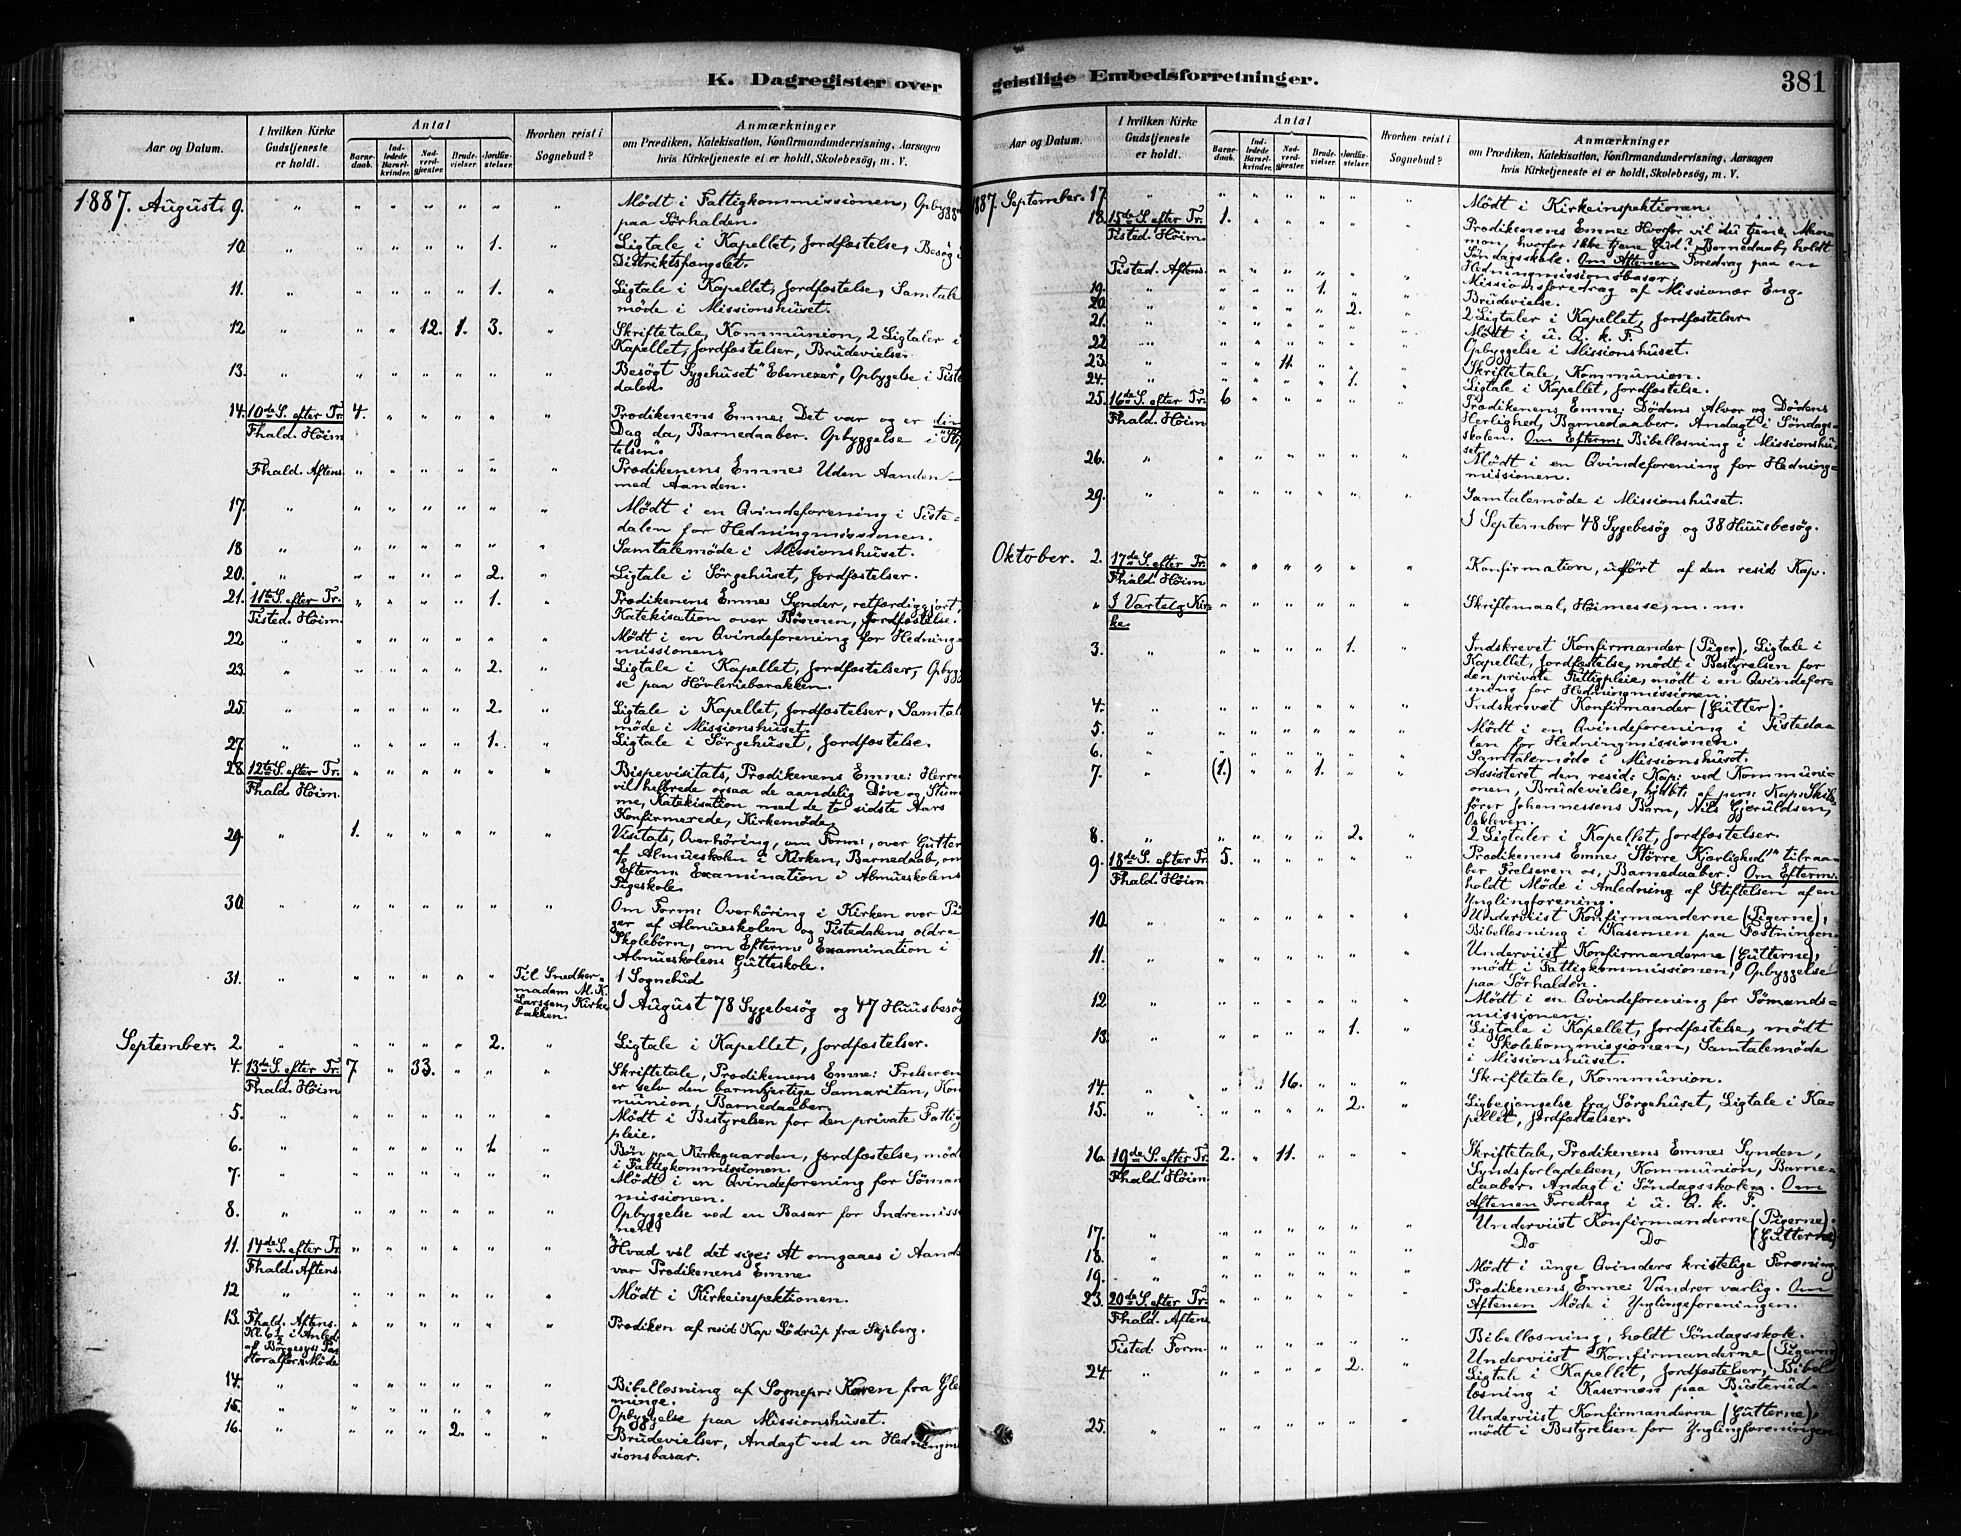 K. Dagregister over
Aar og Datum.
I hvilken Kirke Gudstjeneste er holdt.
Antal
Barnedaab.
Indledede Barselkvinder.
Nadverdgjester.
Brudevielser.
Jordfæstelser.
Hvorhen reist i Sognebud?
Anmærkninger
om Prædiken, Katekisation, Konfirmandundervisning, Aarsagen
hvis Kirketjeneste ei er holdt, Skolebesøg, m. V.
1887. August. 9. Mödt i Fattigkommissionen,
paa Sørhalden.
10. 1. Ligtale i Kapellet, Jordfæstelse, Besøg i
Distriktsfængslet.
11. 1. Ligtale i Kapellet, Jordfæstelse, Samtale
møde i Missionshuset.
12 12. 1. 3. Skriftetale, Kommunion, 2 Ligtaler i
Kapellet, Jordfæstelser, Brudevielse.
13. Besøgt Sygehuset "Ebenezer", Opbyggelse i Tiste
dalen.
14. 10de S. efter Tr. 4. Prædikenens Emne: Det var og er din
Fhald. Høim. Dag da, Barnedaaber. Opbyggelse i
telsen".
Fhald. Aftens. Prædikenens Emne: Uden Aanden —
med Aanden.
17. Mödt i en Qvindeforening i Tiste-
dalen for Hedningmissionen.
18 Samtalemøde i Missionshuset.
20. 2. Ligtale i Sørgehuset, Jordfæstelser.
21. 11te S. efter Tr. 1. Prædikenens Emne: Synder, retfærdiggjort,
Tisted. Høim. Katekisation over Bønnen, Jordfæstelse.
22 Mödt i en Qvindeforening for Hedning-
missionen.
23. 2. Ligtale i Kapellet, Jordfæstelser, Opbygg
se paa Høvleribarakken.
25. 2. Ligtale i Kapellet, Jordfæstelser, Samtale
møde i Missionshuset.
27. 1. Ligtale i Sørgehuset, Jordfæstelse.
28. 12te S. efter Tr. Bispevisitats, Prædikenens Emne: Herren
Fhald Høim. vil helbrede ogsaa de aandelig Døve og Stum
me, Katekisation med de to sidste Aars
Konfirmerede, Kirkemøde.
29. 1. Visitats, Overhøring, om Form:, over Gutter
af Almueskolen i Kirken, Barnedaab, om
Efterm: Examination i Almueskolens
Pigeskole.
30. Om Form: Overhøring i Kirken over Pi
ger af Almueskolen og Tistedalens ældre
Skolebørn, om Efterm: Examination i
Almueskolens Gutteskole.
31. Til Snedker- 1 Sognebud
madam M. K.
Larssen, Kirke I August 78 Sygebesøg og 47 Huusbesøg
bakken.
September. 2. 2. Ligtale i Kapellet, Jordfæstelser.
4. 13de S. efter Tr. 7 33. Skriftetale, Prædikenens Emne: Frelseren
Fhald. Høim er selv den barmhjertige Samaritan, Kom
munion, Barnedaaber.
5. Mödt i Bestyrelsen for den private Fattig
pleie.
6. 1. Bøn paa Kirkegaarden, Jordfæstelse, mødt
i Fattigkommissionen.
7. Mödt i en Qvindeforening for Sømands
missionen.
8. Opbyggelse ved en Basar for Indremiss
nen.
11. 14de S. efter Tr. "Hvad vil det sige: At omgaaes i Aand
Fhald. Aftens. var Prædikenens Emne.
12 Mödt i Kirkeinspektionen.
13. Fhald. Aftens. Prædiken af resid: Kap: Lödrup fra Skjeberg.
Kl. 6½ i Anled:
af Borgesyss. Pas
toralfor: Møde
14. Bibellæsning af Sognepr: Karen fra Gle
minge.
15. Opbyggelse paa Missionshuset.
16. 2. Brudevielser, Andagt ved en Hedningmis
sionsbasar.
geistlige Embedsforretninger. 381
Aar og Datum.
I hvilken Kirke Gudstjeneste er holdt.
Antal
Barnedaab.
Indledede Barselkvinder.
Nadverdgjester.
Brudevielser.
Jordfæstelser.
Hvorhen reist i Sognebud?
Anmærkninger
om Prædiken, Katekisation, Konfirmandundervisning, Aarsagen
hvis Kirketjeneste ei er holdt, Skolebesøg, m. V.
1887. September. 17. Mödt i Kirkeinspektionen.
18. 15de S. efter Tr: 1. Prædikenens Emne: Hvorfor vil du tjene Mam
Tisted. Høim. mon, hvorfor ikke tjene Gud? Barnedaab, holdt
Søndagsskole. Om Aftenen Foredrag paa en
Hedningmissionsbasar.
Tisted. Aftens. Missionsforedrag af Missionær Eng.
19. 1. Brudevielse.
20. 2. 2 Ligtaler i Kapellet, Jordfæstelser
21. Mödt i u. Q. k. F.
22 Opbyggelse i Missionshuset.
23. 11. Skriftetale, Kommunion.
24. 1. Ligtale i Kapellet, Jordfæstelse.
25. 16de S. efter Tr: 6 Prædikenens Emne: Dødens Alvor og Dødens
Fhald. Høim. Herlighed, Barnedaaber. Andagt i Søndags-
skolen. Om Efterm: Bibellæsning i Missionshu
set.
26. Mödt i en Qvindeforening for Hedning-
missionen.
29. Samtalemøde i Missionshuset.
I September 48 Sygebesøg og 38 Huusbesøg.
Oktober. 2. 17de S. efter Tr. Konfirmation, udført af den resid: Kap.
Fhald. Høim
I Vartelg Kir- Skriftemaal, Høimesse, m. m.
ke.
3. 1. Indskrevet Konfirmander (Piger), Ligtale i
Kapellet, Jordfæstelse, mødt i Bestyrelsen for
den private Fattigpleie, mødt i en Qvindefor-
ening for Hedningmissionen.
4. Indskrevet Konfirmander (Gutter).
5. Mödt i en Qvindeforening i Tistedaa
len for Hedningmissionen.
6. Samtalemøde i Missionshuset.
7. (1.) 1. Assisteret den resid: Kap: ved Kommuni-
onen, Brudevielse, hjdbt: af pers: Kap: Skib
fører Johannessens Barn, Nils Gjeruldsen,
Oskleven.
8. 2. 2 Ligtaler i Kapellet, Jordfæstelser.
9. 18de S. efter Tr. 5. Prædikenens Emne: Større Kjærlighed tilraa
Fhald. Høim. ber Frelseren os, Barnedaaber. Om Efterm:
holdt Møde i Anledning af Stiftelsen af en
Ynglingforening.
10. Underviist Konfirmanderne (Pigerne),
Bibellæsning i Kasernen paa Fæstningen.
11. Underviist Konfirmanderne (Gutterne),
mødt i Fattigkommissionen, Opbyggelse
paa Sørhalden.
12 Mödt i en Qvindeforening for Sømands-
missionen.
13. 1. Ligtale i Kapellet, Jordfæstelse, mødt
i Skolekommissionen, Samtalemøde
i Missionshuset.
14. 16. Skriftetale, Kommunion.
15. 2. Ligbegjængelse fra Sørgehuset, Ligtale i Ka-
pellet, Jordfæstelser.
16. 19de S. efter Tr 2. 11. Skriftetale, Prædikenens Emne: Synden,
Fhald. Høim. Syndsforladelsen, Kommunion, Barne-
daaber. Andagt i Søndagsskolen. Om
Aftenen Foredrag i u. Q. k. F.
17. Underviist Konfirmanderne (Pigerne).
18. Do Do (Gutterne)
19. Mödt i unge Qvinders kristelige Forening.
23. 20de S. efter Tr: Prædikenens Emne: Vandrer varlig. Om
Fhald. Aftens Aftenen Møde i Ynglingeforeningen.
Tisted. Form. Bibellæsning, holdt Søndagsskole.
24. 2. Underviist Konfirmanderne (Pigerne)
Ligtale i Kapellet, Jordfæstelser, Bibel
læsning i Kasernen paa Busterud.
25. Underviist Konfirmanderne (Gutterne),
mødt i Bestyrelsen for Ynglingforeningen